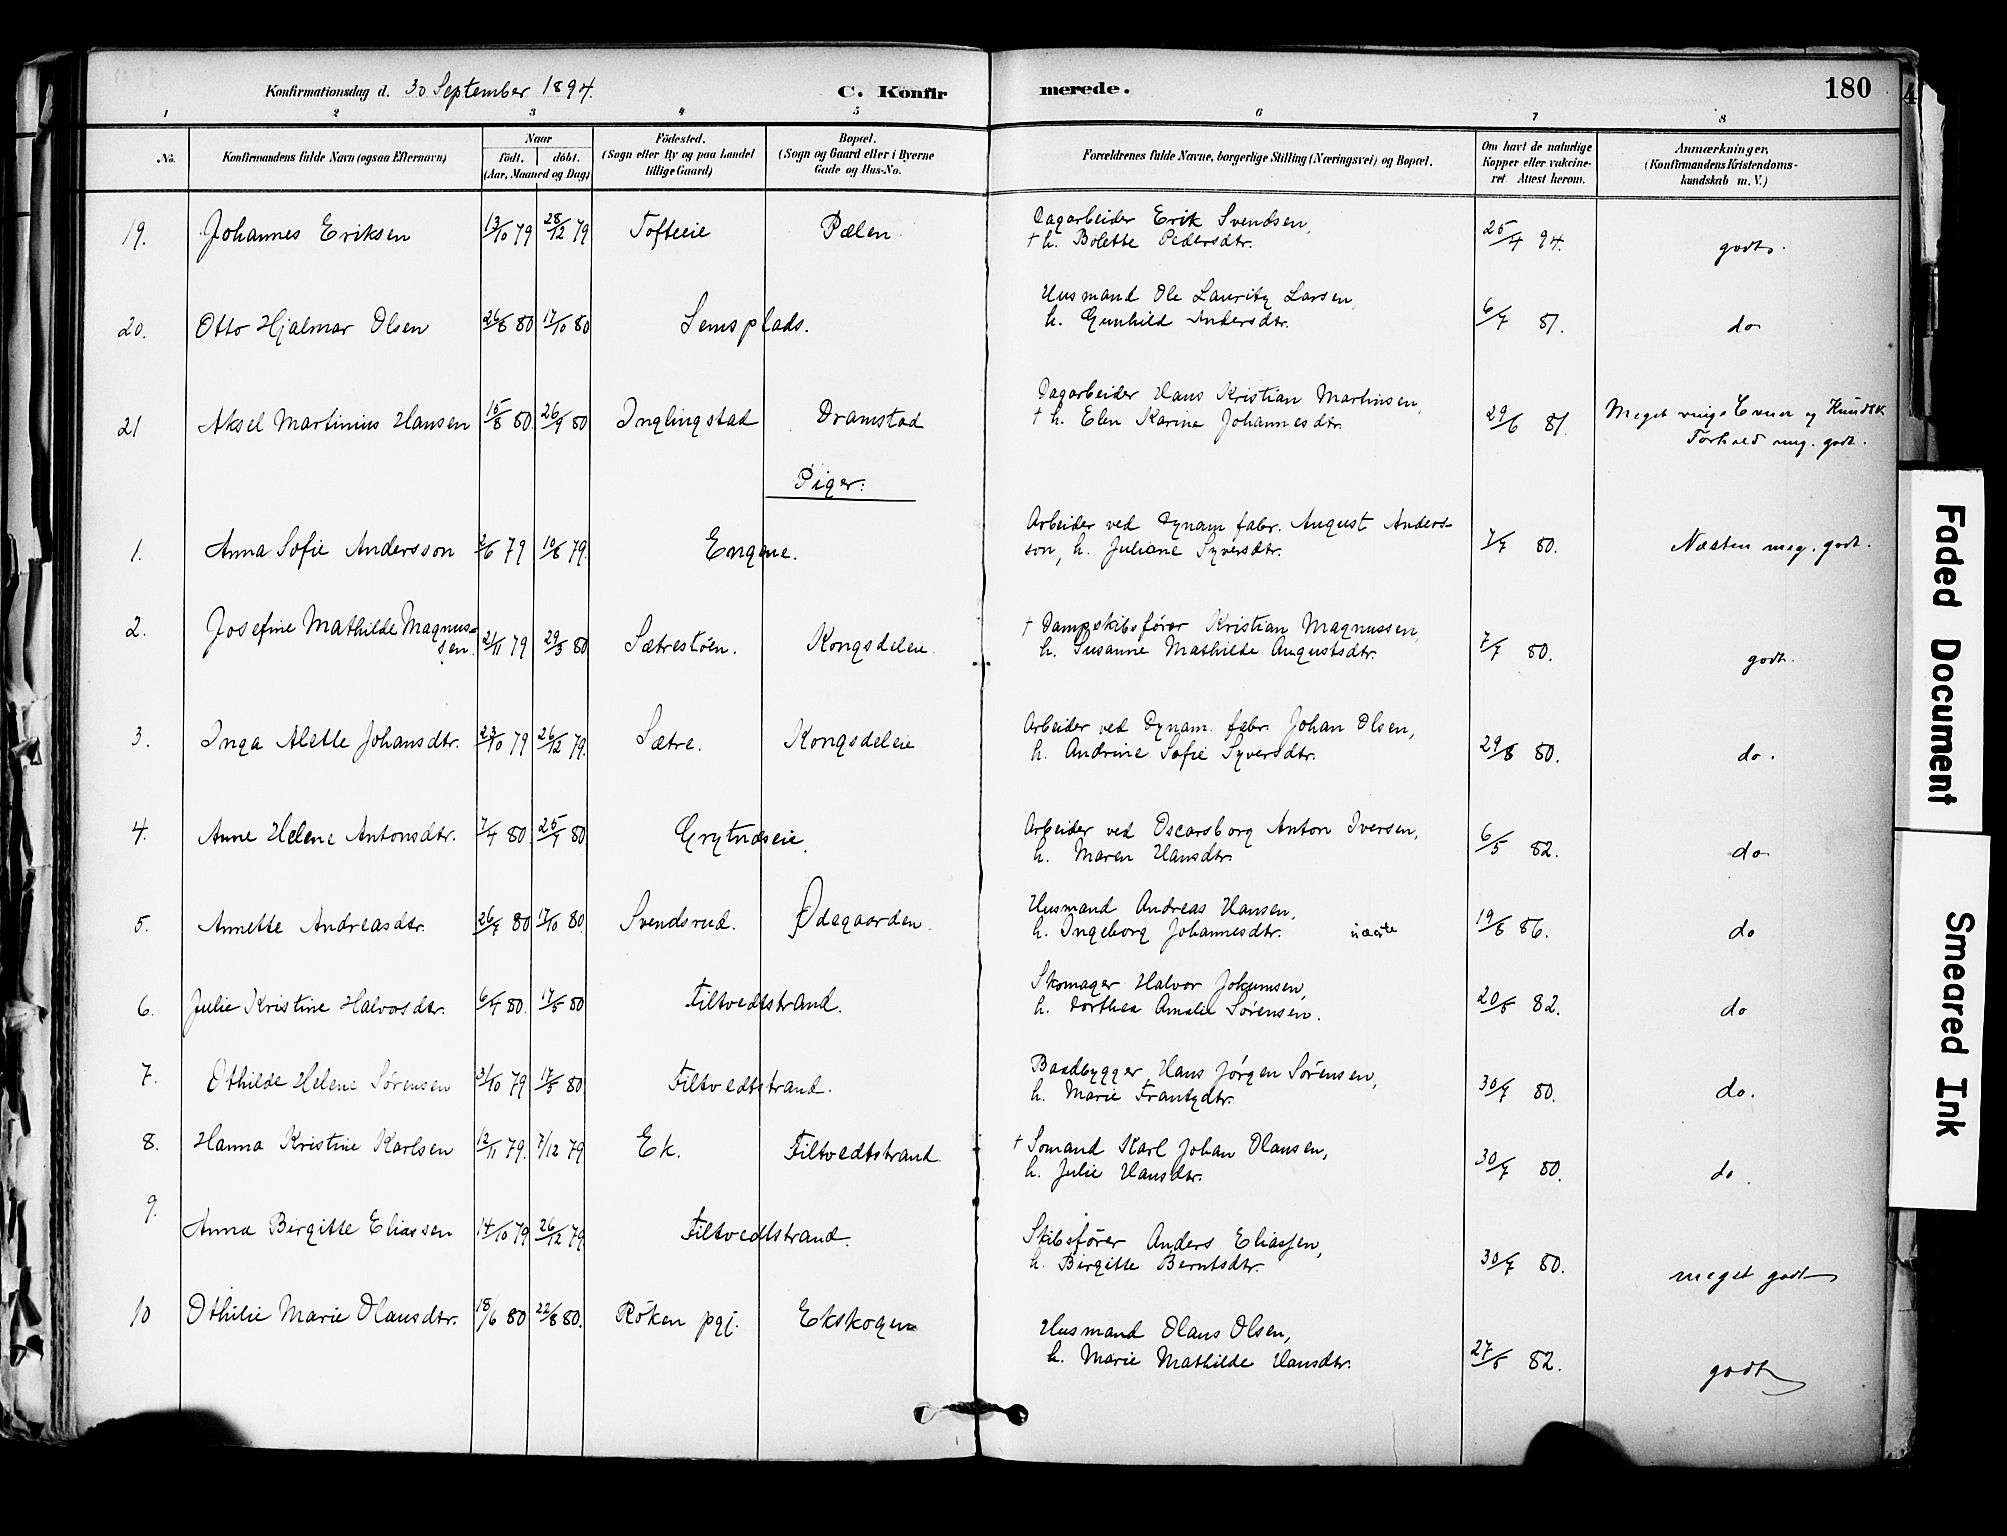 Konfirmationsdag d. 30 September 1894.
C. Konfir merede.
180
1 2 3 4 5 6 7 8
No.
Konfirmandens fulde Navn (ogsaa Efternavn)
Naar
födt. döbt.
(Aar, Maaned og Dag)
Födested.
(Sogn eller By og paa Landet tillige Gaard)
Bopæl.
(Sogn og Gaard eller i Byerne Gade og Hus-No.
Forældrenes fulde Navne, borgerlige Stilling (Næringsvei) og Bopæl.
Om havt de naturlige Kopper eller vakcineret Attest herom.
Anmærkninger.
(Konfirmandens Kristendomskundskab m. V.)
19. Johannes Eriksen 13/10 79 28/12 79 Tofteeie Pælen Dagarbeider Erik Svendsen, 25/4 94. godt.
† h. Bolette Pedersdtr.
20. Otto Hjalmar Olsen 26/8 80 17/10 80 Semsplads. Husmand Ole Lauritz Larsen, 6/7 81. do
h. Gunhild Andersdtr.
21 Aksel Martinius Hansen 15/8 80 26/9 80 Inglingstad Dramstad Dagarbeider Hans Kristian Martinsen, 29/6 81. Meget ringe Evner og Kundsk
† h. Elen Karine Johannesdtr. Forhold meg. godt.
Piger:
1. Anna Sofie Andersson 2/6 79 10/8 79. Engene. Arbeider ved Dynam fabr. August Anders-
son, h. Juliane Syversdtr. 7/7 80. Næsten meg. godt.
2. Josefine Mathilde Magnus= † Dampskibsfører Kristian Magnussen,
sen. 21/11 79 29/3 80 Sætrestöen. Kongsdeleie. h. Susanne Mathilde Augustsdtr. 7/7 80. godt.
3. Inga Alette Johansdtr. 23/10 79 26/12 79. Sætre. Kongsdeleie Arbeider ved Dynam. fabr. Johan Olsen, 29/8 80. do.
h. Andrine Sofie Syversdtr.
4. Anne Helene Antonsdtr. 7/4 80. 25/7 80 Grytnæseie. Arbeider ved Oscarsborg Anton Iversen, 6/5 82. do
h. Maren Hansdtr.
5. Annette Andreasdtr. 26/7 80 17/10 80. Svendsrud. Ødegaarden. Husmand Andreas Hansen, 19/8 86. do
h. Ingeborg Johannesdtr.
6. Julie Kristine Halvorsdtr. 6/4 80. 17/5 80 Filtvedtstrand. Skomager Halvor Jokumsen, 20/5 82. do
h. Dorthea Amalie Sørensen.
7. Othilde Helene Sørensen 3/10 79 17/5 80. Filtvedtstrand. Baadbygger Hans Jørgen Sørensen, 30/7 80. do.
h. Marie Frantzdtr.
8. Hanna Kristine Karlsen 12/11 79. 7/12 79 Ek. Filtvedtstrand. † Somand Karl Johan Olausen, 30/7 80. do.
h. Julie Hansdtr.
9. Anna Birgitte Eliassen 14/10 79 26/12 79 Filtvedtstrand. Skibsfører Anders Eliassen,
h. Birgitte Berntsdtr. 30/7 80. meget godt
10 Othilie Marie Olausdtr. 18/6 80 22/8 80. Röken pgj. Ekskogen Husmand Olaus Olsen,
h. Marie Mathilde Hansdtr. 27/5 82. godt
Faded Document
Smeared Ink